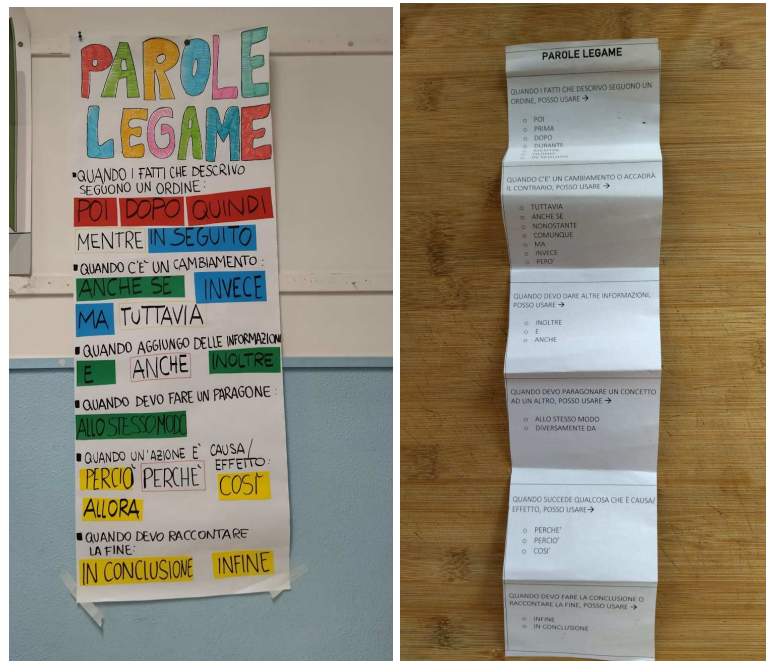 PAROLE
LEGAME
QUANDO I FATTI CHE DESCRIVO
SEGUONO UN ORDINE:
POI DOPO QUINDI
MENTRE IN SEGUITO
QUANDO C'È UN CAMBIAMENTO:
ANCHE SE INVECE
MA TUTTAVIA
QUANDO AGGIUNGO DELLE INFORMAZIONI
E ANCHE INOLTRE
QUANDO DEVO FARE UN PARAGONE:
ALLO STESSO MODO
QUANDO UN'AZIONE È CAUSA/
EFFETTO:
PERCIÒ PERCHÈ COSÌ
ALLORA
QUANDO DEVO RACCONTARE
LA FINE:
IN CONCLUSIONE INFINE
PAROLE LEGAME
QUANDO I FATTI CHE DESCRIVO SEGUONO UN
ORDINE, POSSO USARE →
POI
PRIMA
DOPO
DURANTE
QUANDO C'E' UN CAMBIAMENTO O ACCADRÀ
IL CONTRARIO, POSSO USARE →
TUTTAVIA
ANCHE SE
NONOSTANTE
COMUNQUE
MA
INVECE
PERO'
QUANDO DEVO DARE ALTRE INFORMAZIONI,
POSSO USARE →
INOLTRE
E
ANCHE
QUANDO DEVO PARAGONARE UN CONCETTO
AD UN ALTRO, POSSO USARE →
ALLO STESSO MODO
DIVERSAMENTE DA
QUANDO SUCCEDE QUALCOSA CHE È CAUSA/
EFFETTO, POSSO USARE →
PERCHE'
PERCIO'
COSI'
QUANDO DEVO FARE LA CONCLUSIONE O
RACCONTARE LA FINE, POSSO USARE →
INFINE
IN CONCLUSIONE